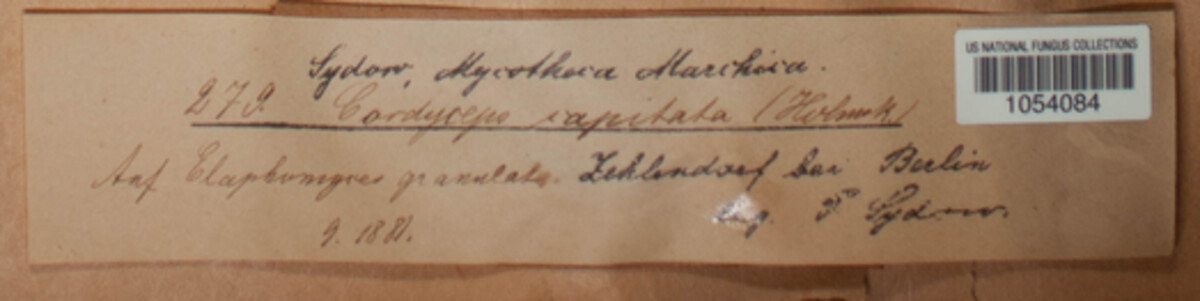 Sydow, Mycotheca Marchica.
279. Cordyceps capitata (Holmsk)
Auf Elaphomyces granulat. Zehlendorf bei Berlin
9. 1881. leg. P Sydow.
US NATIONAL FUNGUS COLLECTIONS
1054084